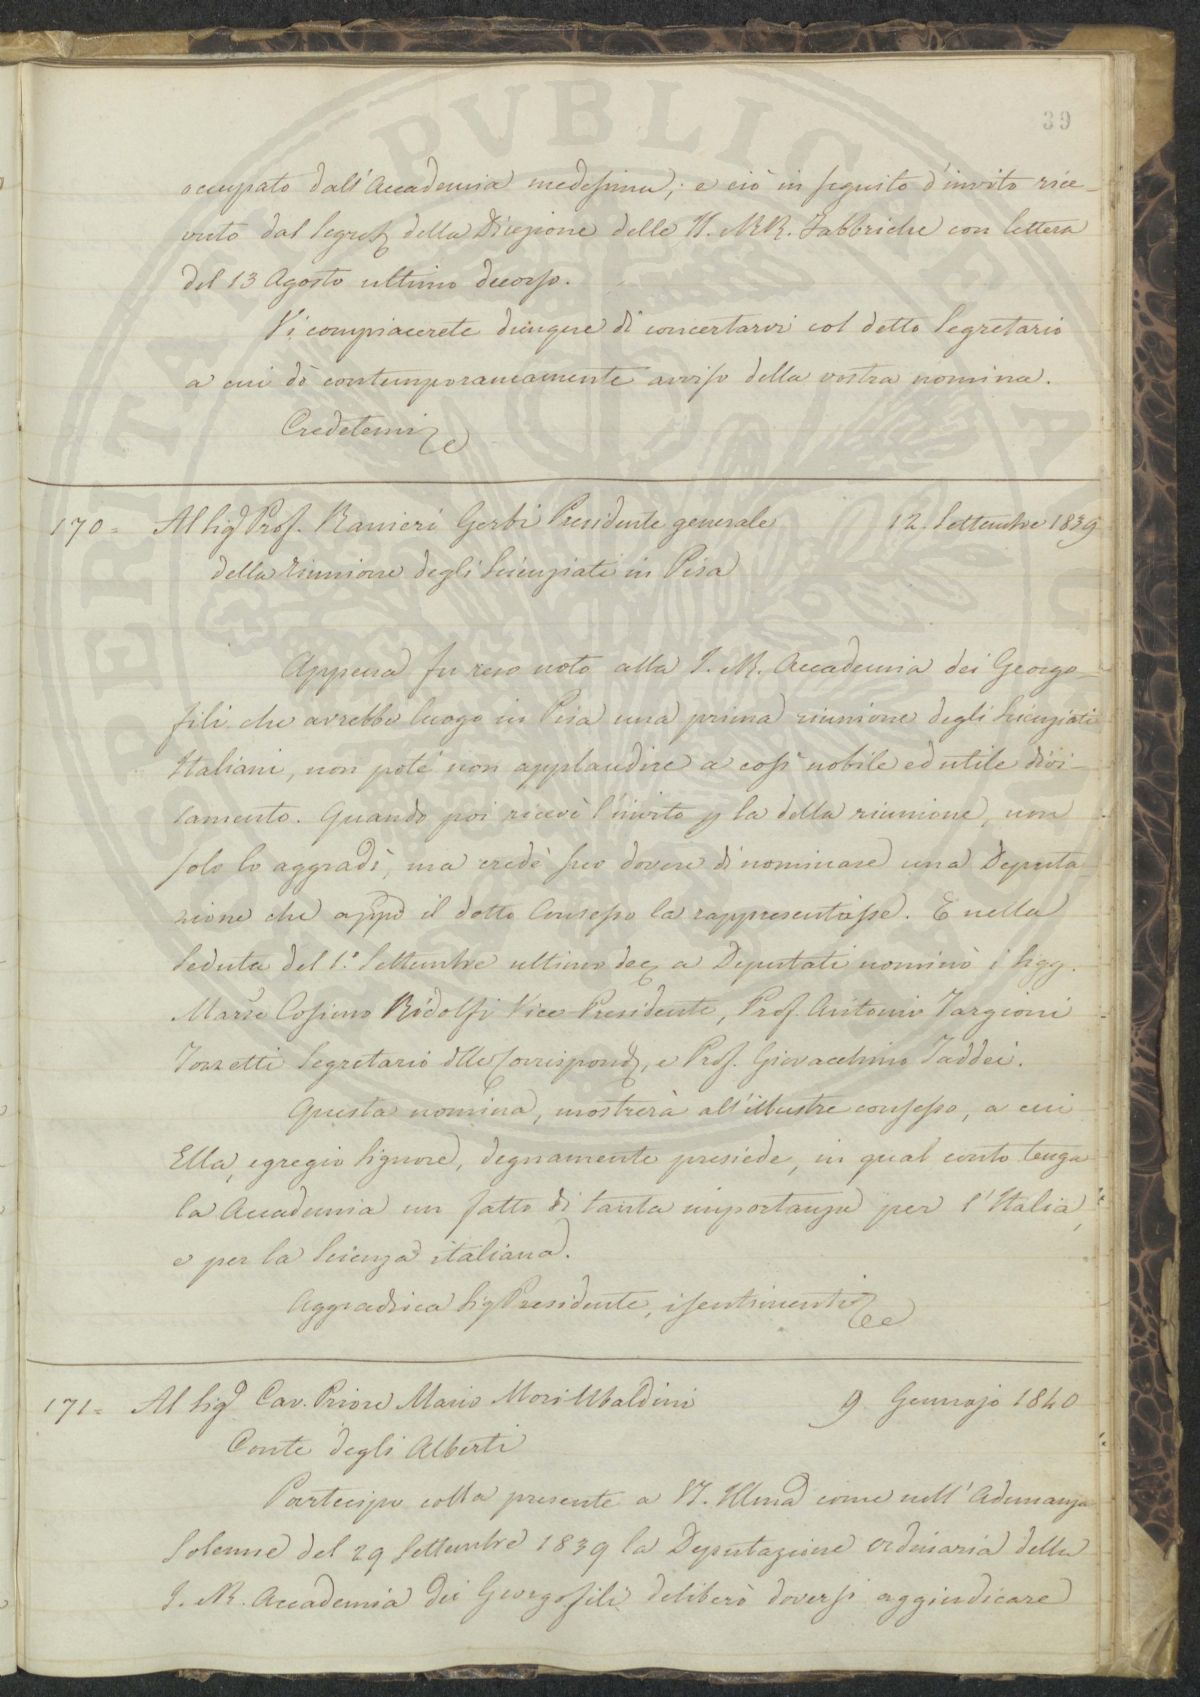 39
occupato dall'Accademia medesima; e ciò in seguito d'invito rice-
vuto dal Segret. della Direzione delle II. e RR. Fabbriche con lettera
del 13 Agosto ultimo decorso.
Vi compiacerete dunque di concertarvi col detto Segretario
a cui dò contemporaneamente avviso della vostra nomina.
Credetemi
170= Al Sig. Prof. Ranieri Gerbi Presidente generale 12. Settembre 1839
della riunione degli Scienziati in Pisa
Appena fu reso noto alla I. e R. Accademia dei Georgo-
fili che avrebbe luogo in Pisa una prima riunione degli Scienziati
Italiani, non poté non applaudire a così nobile ed utile divi-
samento. Quando poi ricevè l'invito p. la detta riunione, non
solo lo aggradì, ma credè suo dovere di nominare una Deputa-
zione che app.o il dotto Consesso la rappresentasse. E nella
Seduta del 1.° Settembre ultimo dec. a Deputati nominò i Sigg.
Mar.se Cosimo Ridolfi Vice-Presidente, Prof. Antonio Targioni
Tozzetti Segretario d'lle Corrispond., e Prof. Giovacchino Taddei.
Questa nomina, mostrerà all'illustre consesso, a cui
Ella, egregio Signore, degnamente presiede, in qual conto tenga
la Accademia un fatto di tanta importanza per l'Italia,
e per la Scienza italiana.
Aggradisca Sig. Presidente, i sentimenti
171= Al Sig. Cav. Priore Mario Mori Ubaldini 9 Gennajo 1840
Conte degli Alberti
Partecipo colla presente a V. Ill.ma come nell'Adunanza
Solenne del 29 Settembre 1839 la Deputazione ordinaria della
I. e R. Accademia dei Georgofili deliberò doversi aggiudicare
PERITATI PVBLICAE AV